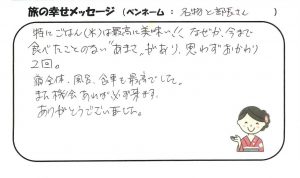 旅の幸せメッセージ (ペンネーム : 名物と部長さん )
特にごはん(米)は最高に美味い!! なぜか、今まで
食べたことのない"あまさ"があり、思わずおかわり
2回。
宿全体、風呂、食事も最高でした。
また機会あれば必ず来ます。
ありがとうございました。